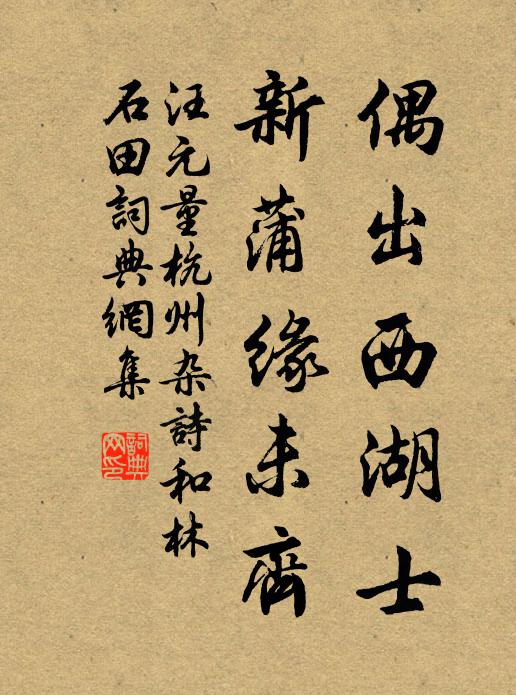 偶出西湖士
新蒲緣未齊
汪元量杭州杂詩和林
石田詞典網集
詞典
网印